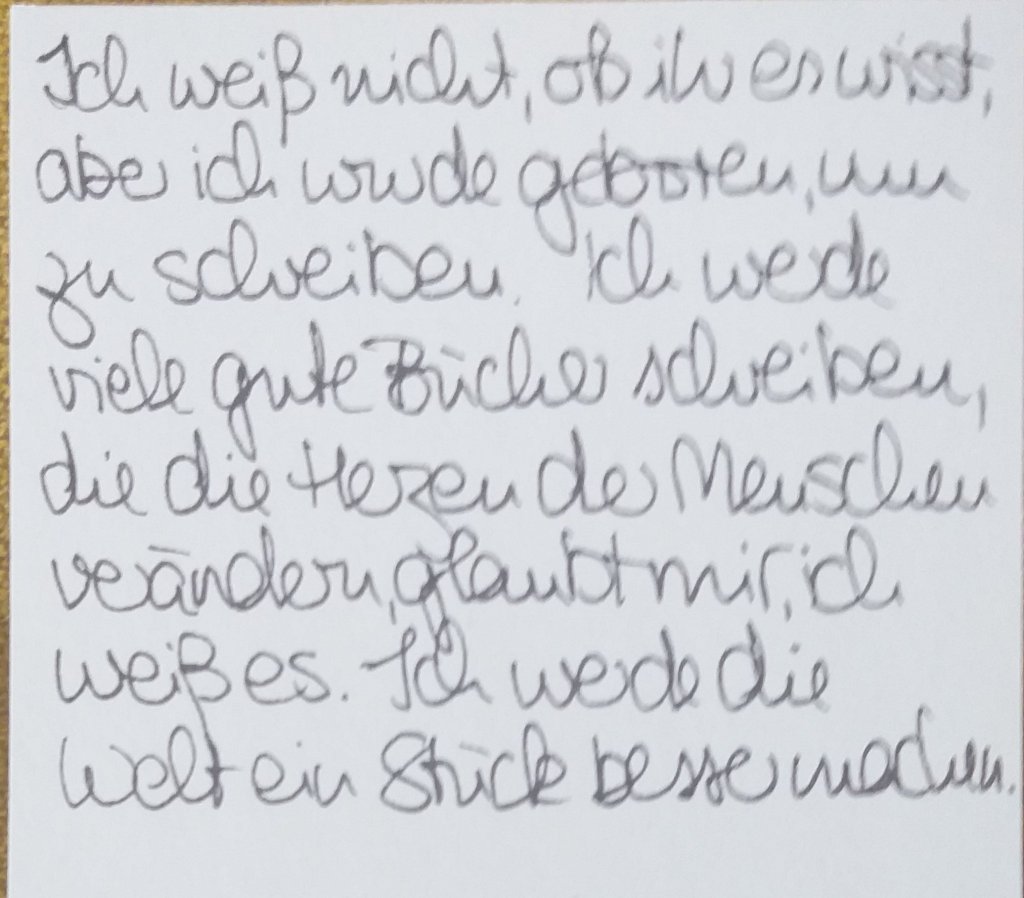 Ich weiß nicht, ob ihr es wisst,
aber ich wurde geboren, um
zu schreiben. Ich werde
viele gute Bücher schreiben,
die die Herzen der Menschen
verändern, glaubt mir, ich
weiß es. Ich werde die
Welt ein Stück besser machen.